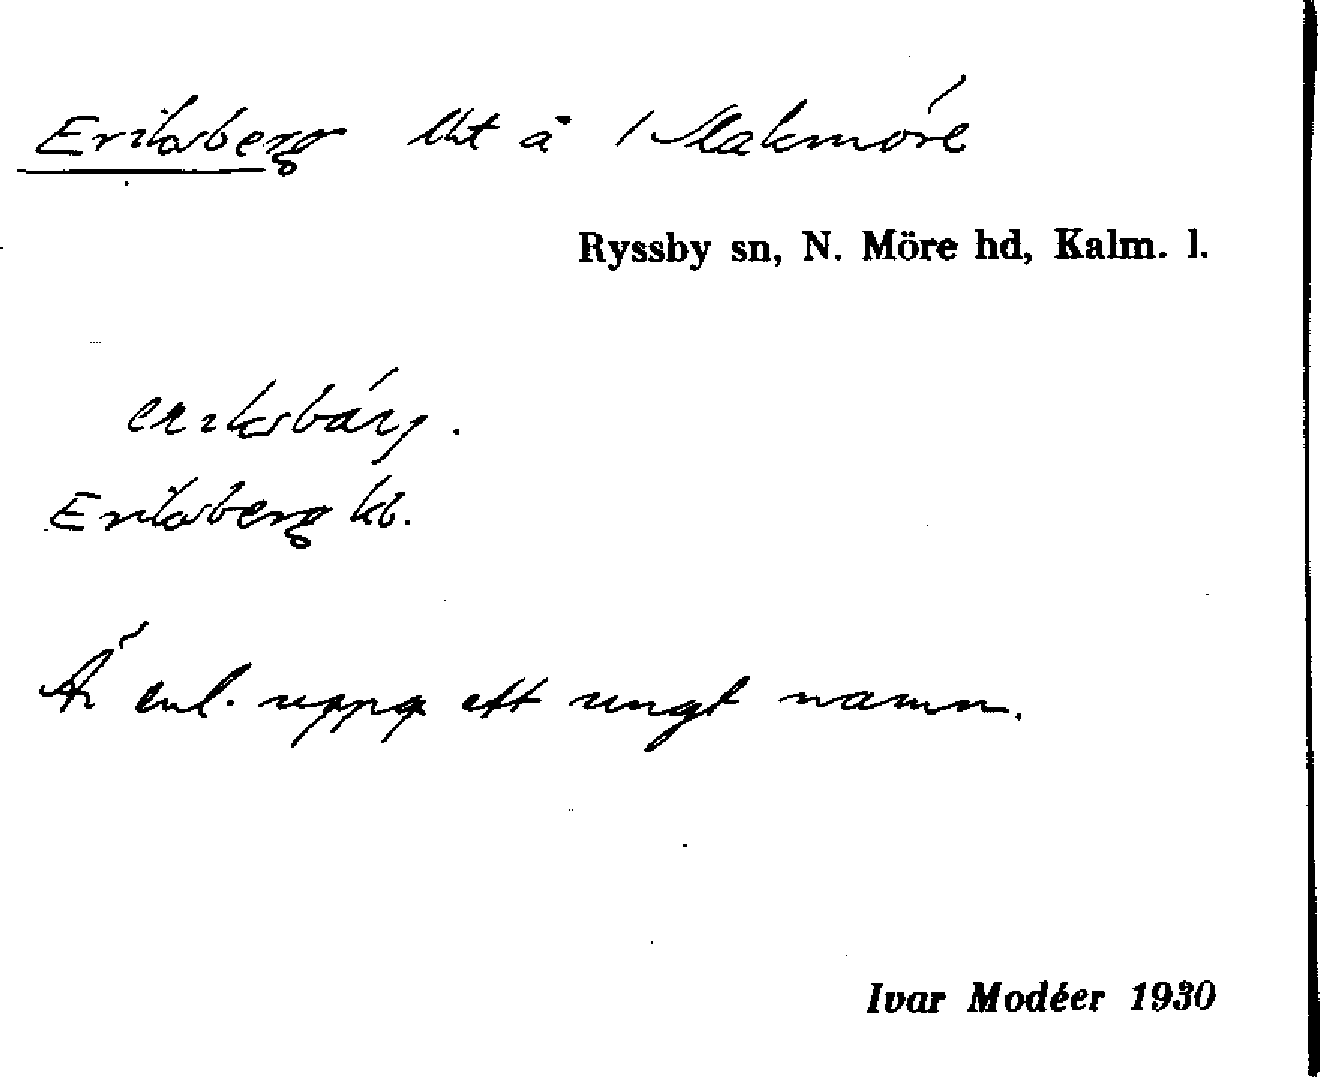 Eriksberg lht å 1 Slakmöre
Ryssby sn, N. Möre hd, Kalm. l.
erıksbárj.
Eriksberg kb.
Är enl. uppg ett ungt namn.
Ivar Modéer 1930